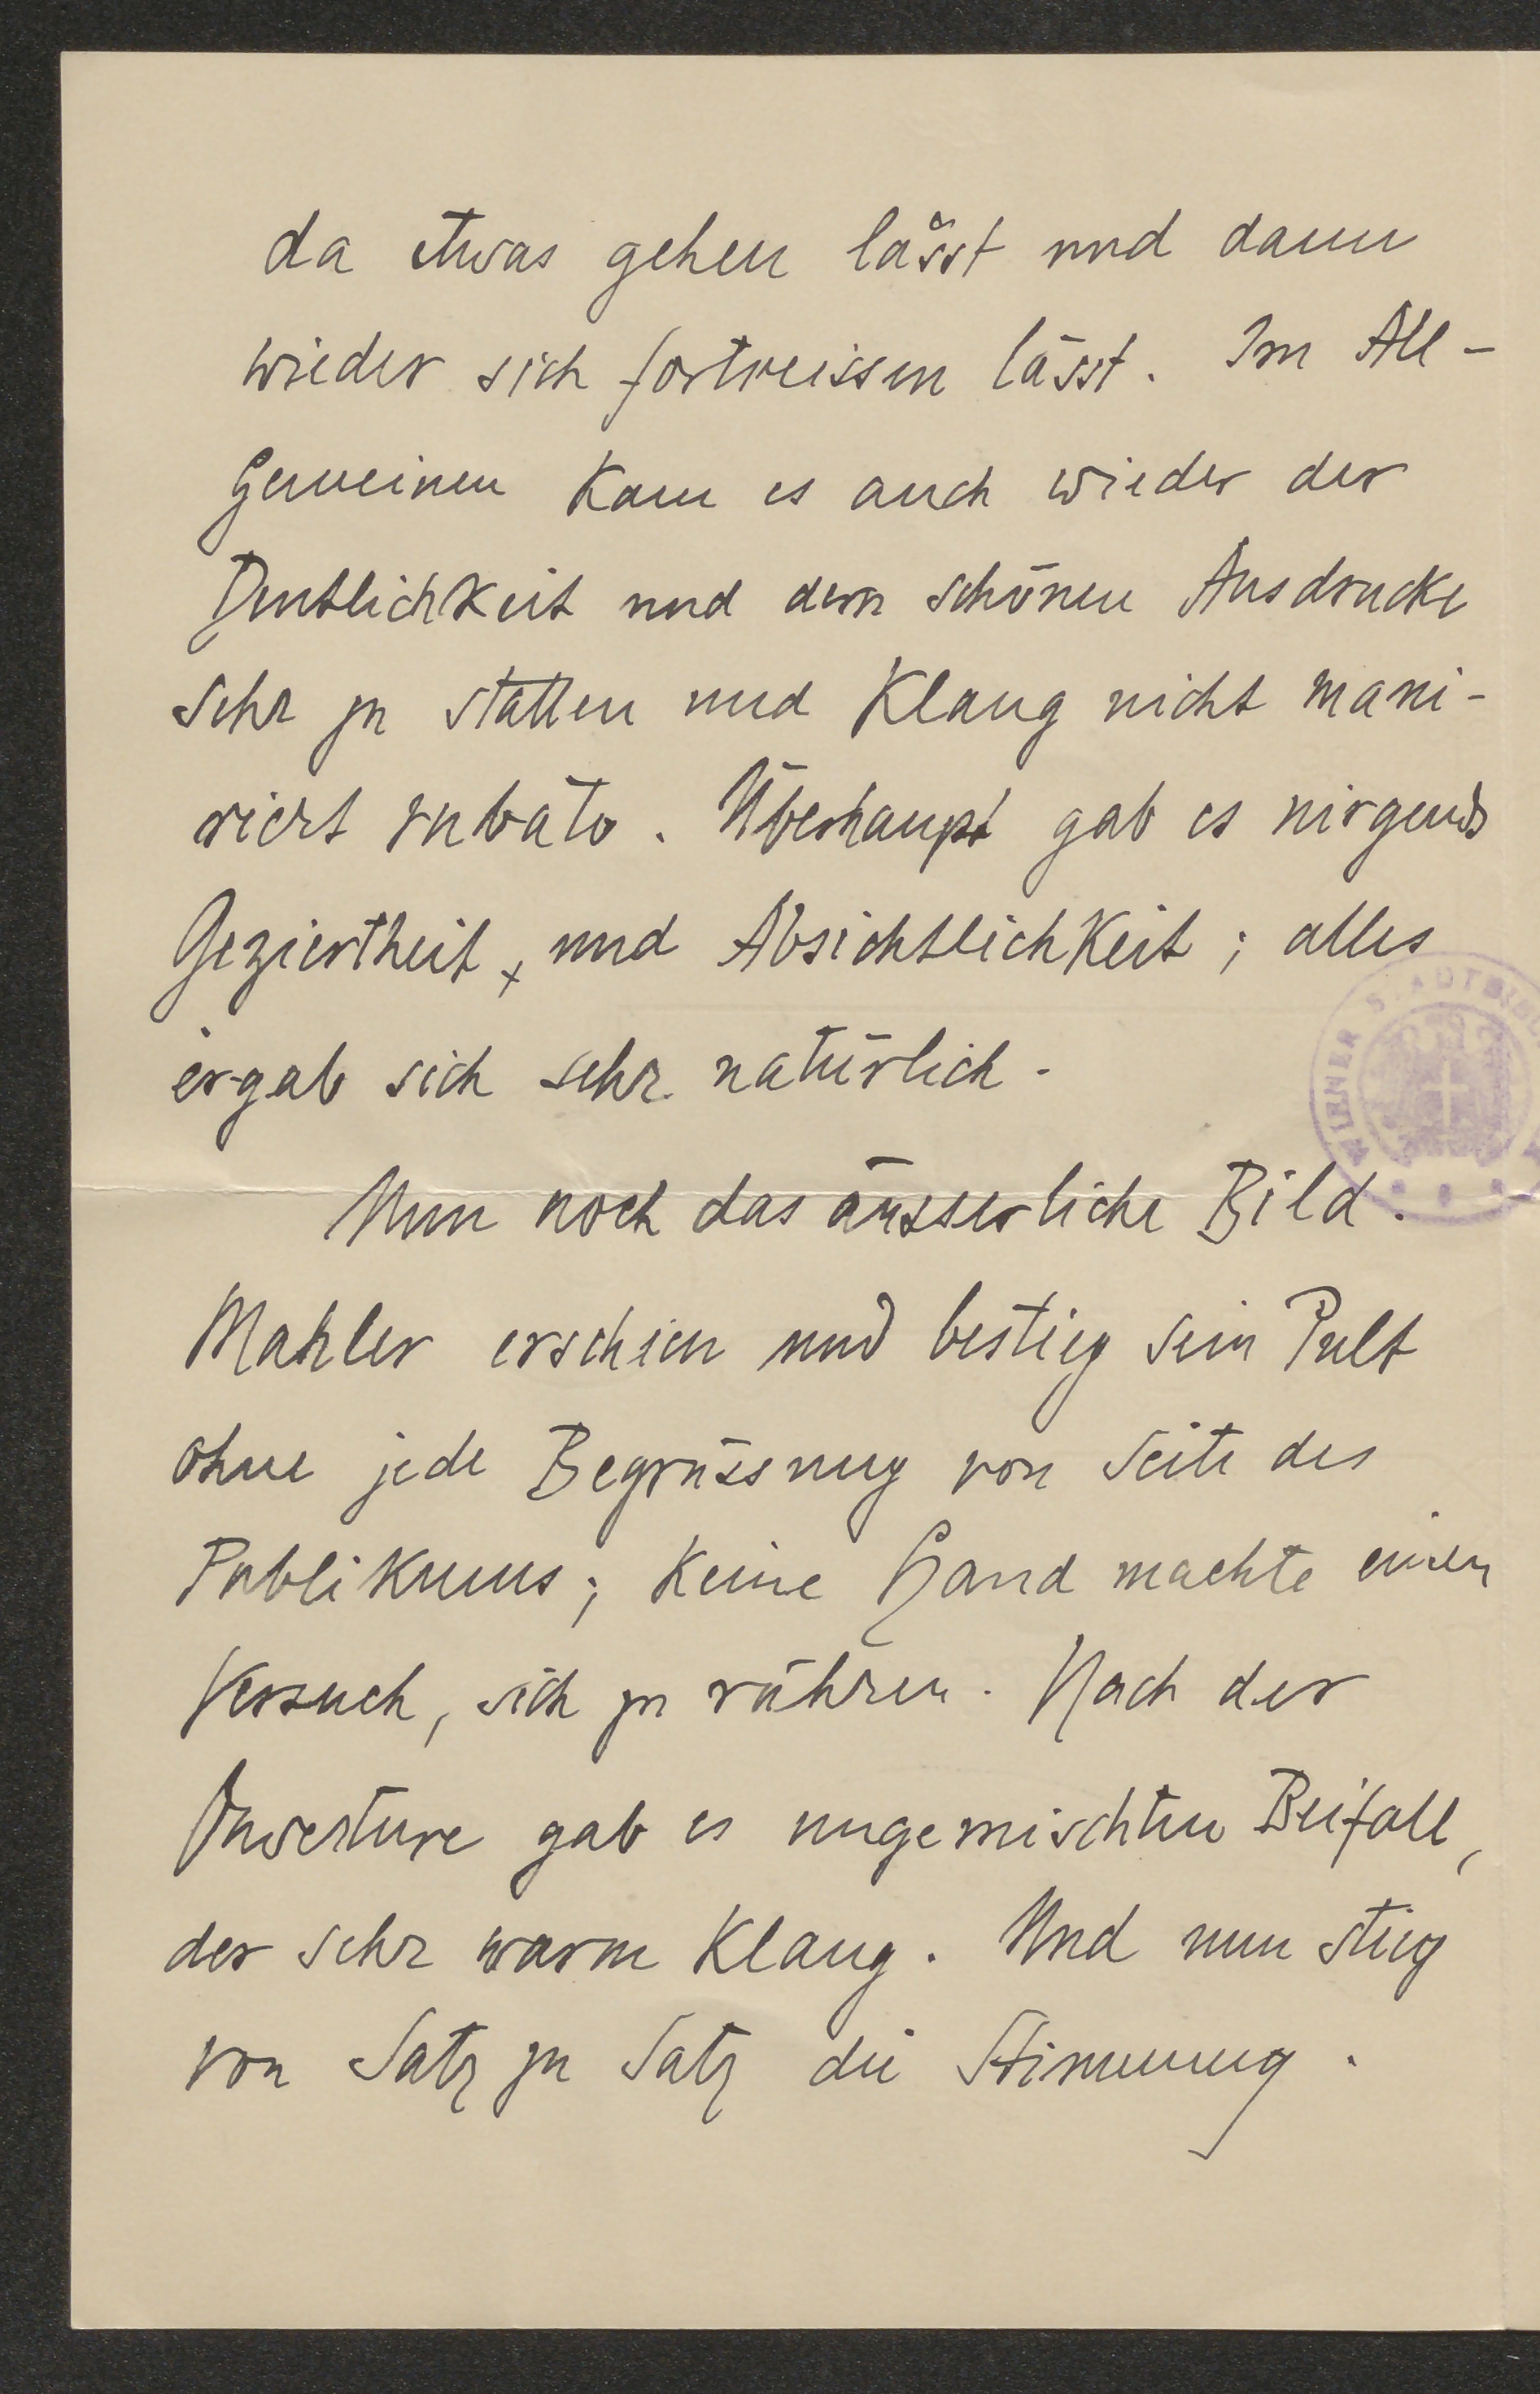 da etwas gehen lässt und dann
wieder sich fortreissen lässt. Im All-
gemeinen kam es auch wieder der
Deutlichkeit und dem schönen Ausdrucke
sehr zu statten und klang nicht mani-
riert rubato. Überhaupt gab es nirgends
Geziertheit, und Absichtlichkeit; alles
ergab sich sehr natürlich.
Nun noch das äusserliche Bild.
Mahler erschien und bestieg sein Pult
ohne jede Begrüssung von Seite des
Publikums; keine Hand machte einen
Versuch, sich zu rühren. Nach der
Ouverture gab es ungemischten Beifall,
der sehr warm klang. Und nun stieg
von Satz zu Satz die Stimmung.
WIENER STADTBI